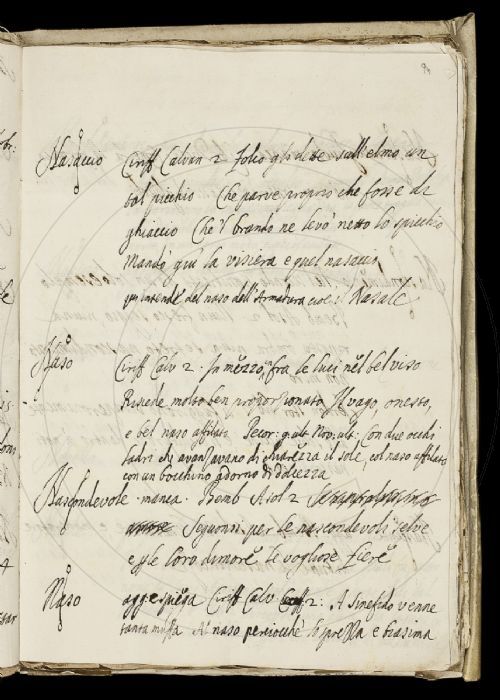 94
Nasaccio Ciriff Calvan 2 Folco gli dette sull'elmo un
bal picchio Che parve proprio che fosse di
ghiaccio Che 'l brando ne levò netto lo spicchio
Mandò giù la visiera e quel nasaccio
qui intende del naso dell'Armadura cioe il Nasale
Naso Ciriff Calv 2. In mezzo, fra le luci nel bel viso
Risiede molto ben proporzionato Il vago, onesto,
e bel naso affilato Pecor: g. ult. Nov. ult: Con due occhi
ladri ch'avanzavano di chiarezza il sole, col naso affilato
con un bocchino adorno di dolcezza
Nascondevole. manca. Bemb Asol 2
Seguonsi per le nascondevoli selve
e per le loro dimore le vogliose fiere
Naso agg e spiega Ciriff Calv 2: A Sinefido venne
tanta muffa Al naso perciocchè lo sprezza e biasima